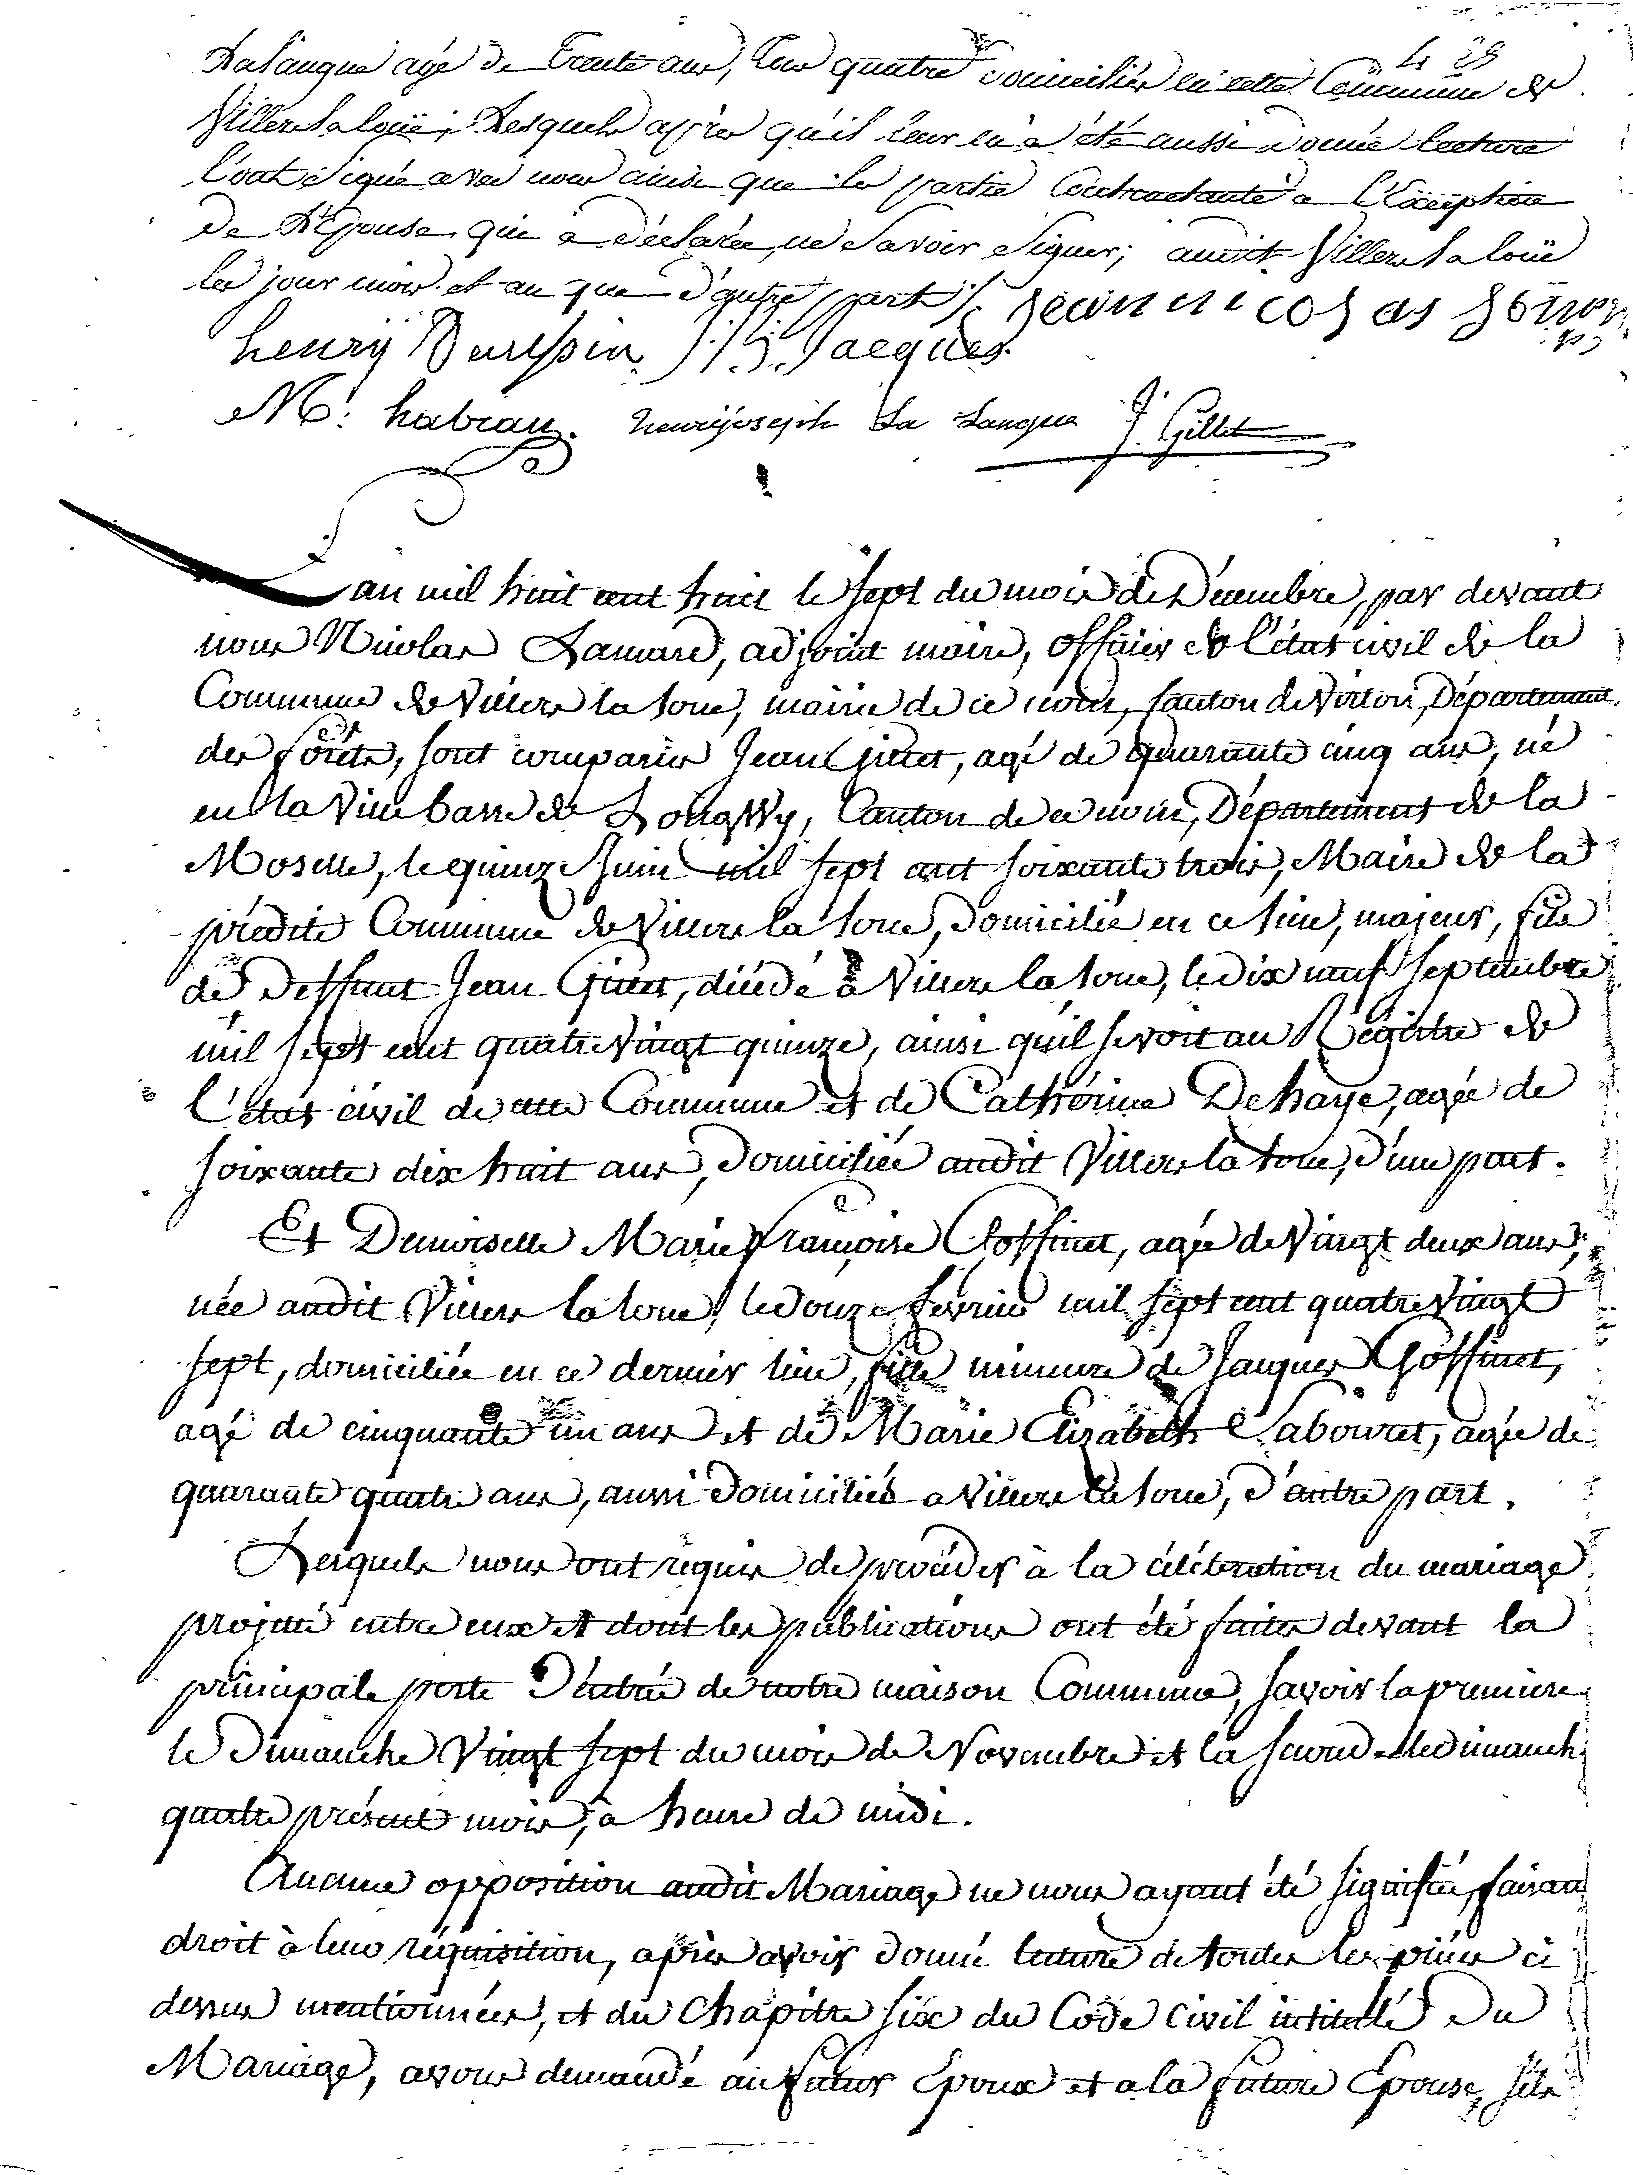 Lalangue agé de trente ans, tous quatre domiciliés en cette Commune de
Villers la loüe; desquels après qu'il leur en a été aussi donnée lecture
l'ont signé avec nous ainsi que les partie Contractante a l'Exception
de L'Epouse qui a déclarée ne Savoir Signer; audit Villers la loüe
les jour mois et an que d'autre part.
jean nicolas
henry J: B: Jacques
M: habran. henrÿ joseph La Langue J: Gillet
L'an mil huit cent huit le sept du mois de Décembre, par devant
nous Nicolas Lamare, adjoint maire, officier de l'état civil de la
Commune de Villers la loue, mairie de ce nom, Canton de Virton, Département
des Forêts, sont comparus Jean Gillet, agé de quarante cinq ans, né
en la Ville basse de Longwy, Canton de ce nom, Département de la
Moselle, le quinze Juin mil sept cent soixante trois, Maire de la
prédite Commune de Villers la loue, domicilié en ce lieu, majeur, fils
de deffunt Jean Gillet, décédé à Villers la loue, le dix neuf septembre
mil sept cent quatre Vingt quinze, ainsi qu'il se voit au Régistre de
L'état civil de cette Commune et de Cathérine Dehaye, agée de
soixante dix huit ans, domiciliée audit Villers la loue, d'une part.
Et Demoiselle Marie Françoise Goffinet, agée de Vingt deux ans,
née audit Villers la loue, le douze février mil sept cent quatre Vingt
sept, domiciliée en ce dernier lieu, fille mineure de Jacques Goffinet,
agé de cinquante un ans et de Marie Elizabeth Sabouret, agée de
quarante quatre ans, aussi domiciliés a Villers la loue, d'autre part.
Lesquels nous ont réquis de procéder à la célébration du mariage
projetté entre eux et dont les publications ont été faites devant la
principale porte d'entrée de notre maison Commune, savoir la premiere
le Dimanche Vingt sept du mois de Novembre et la seconde le dimanche
quatre présent mois, a heure de midi.
Aucune opposition audit Mariage ne nous ayant été signifiée, faisant
droit à leur réquisition, après avoir donné lecture de toutes les pièces ci
dessus mentionnées, et du Chapitre six du Code Civil intitullé Du
Mariage, avons demandé au futur Epoux et a la future Epouse, s'ils